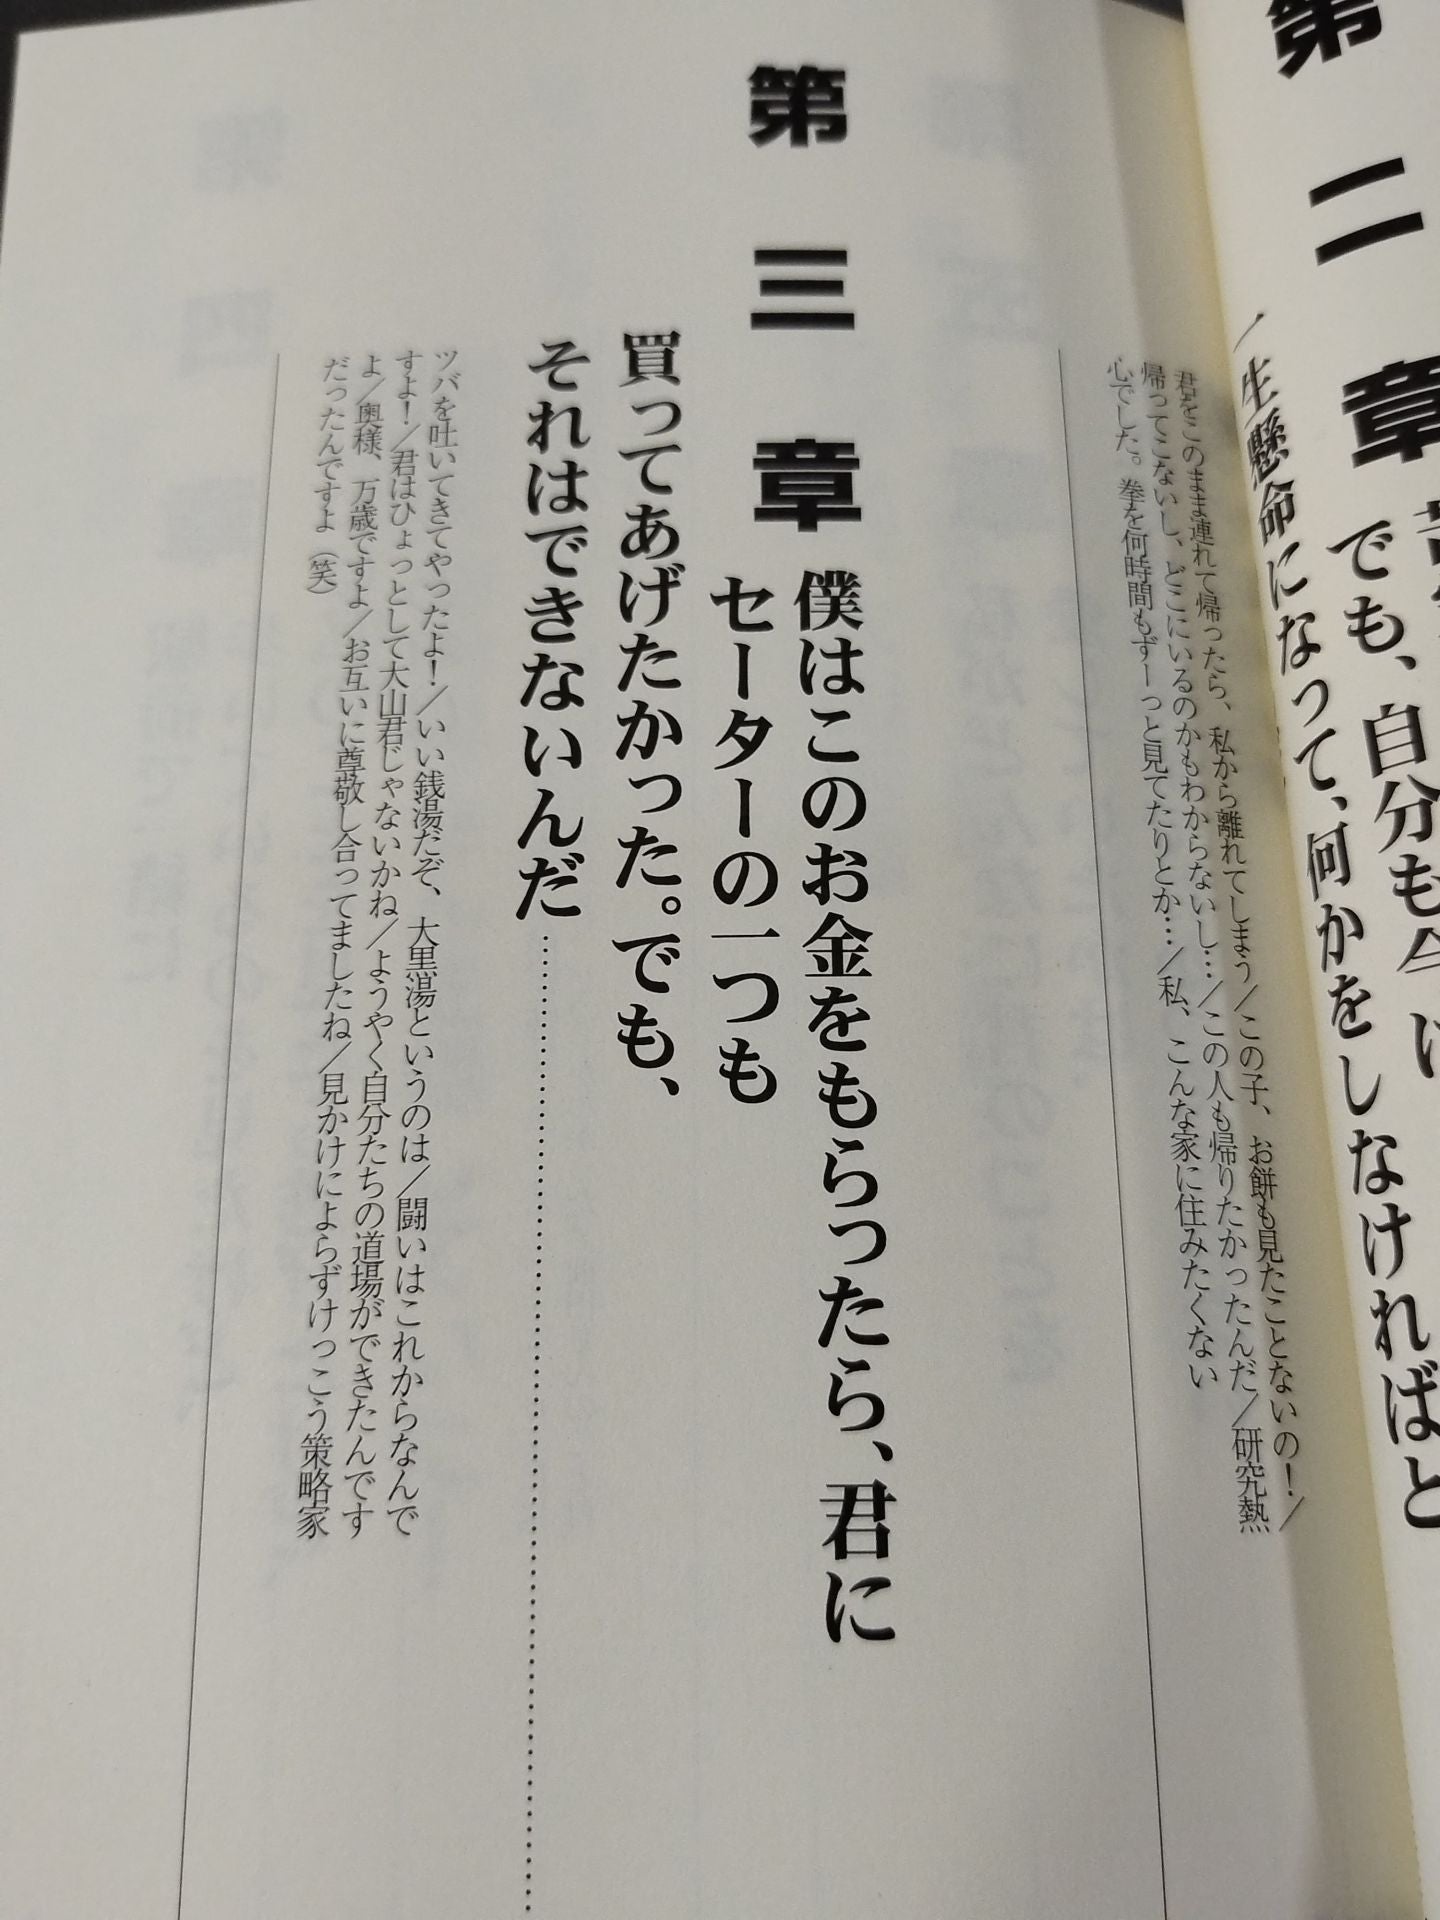 第二章
でも、自分も今
一生懸命になって、何かをしなければと
君をこのまま連れて帰ったら、私から離れてしまう／この子、お餅も見たことないの！／
帰ってこないし、どこにいるのかもわからないし…／この人も帰りたかったんだ／研究熱
心でした。拳を何時間もずーっと見てたりとか…／私、こんな家に住みたくない
第三章
僕はこのお金をもらったら、君に
セーターの一つも
買ってあげたかった。でも、
それはできないんだ
ツバを吐いてきてやったよ！／いい銭湯だぞ、大黒湯というのは／闘いはこれからなんで
すよ！／君はひょっとして大山君じゃないかね／ようやく自分たちの道場ができたんです
よ／奥様、万歳ですよ／お互いに尊敬し合ってましたね／見かけによらずけっこう策略家
だったんですよ（笑）